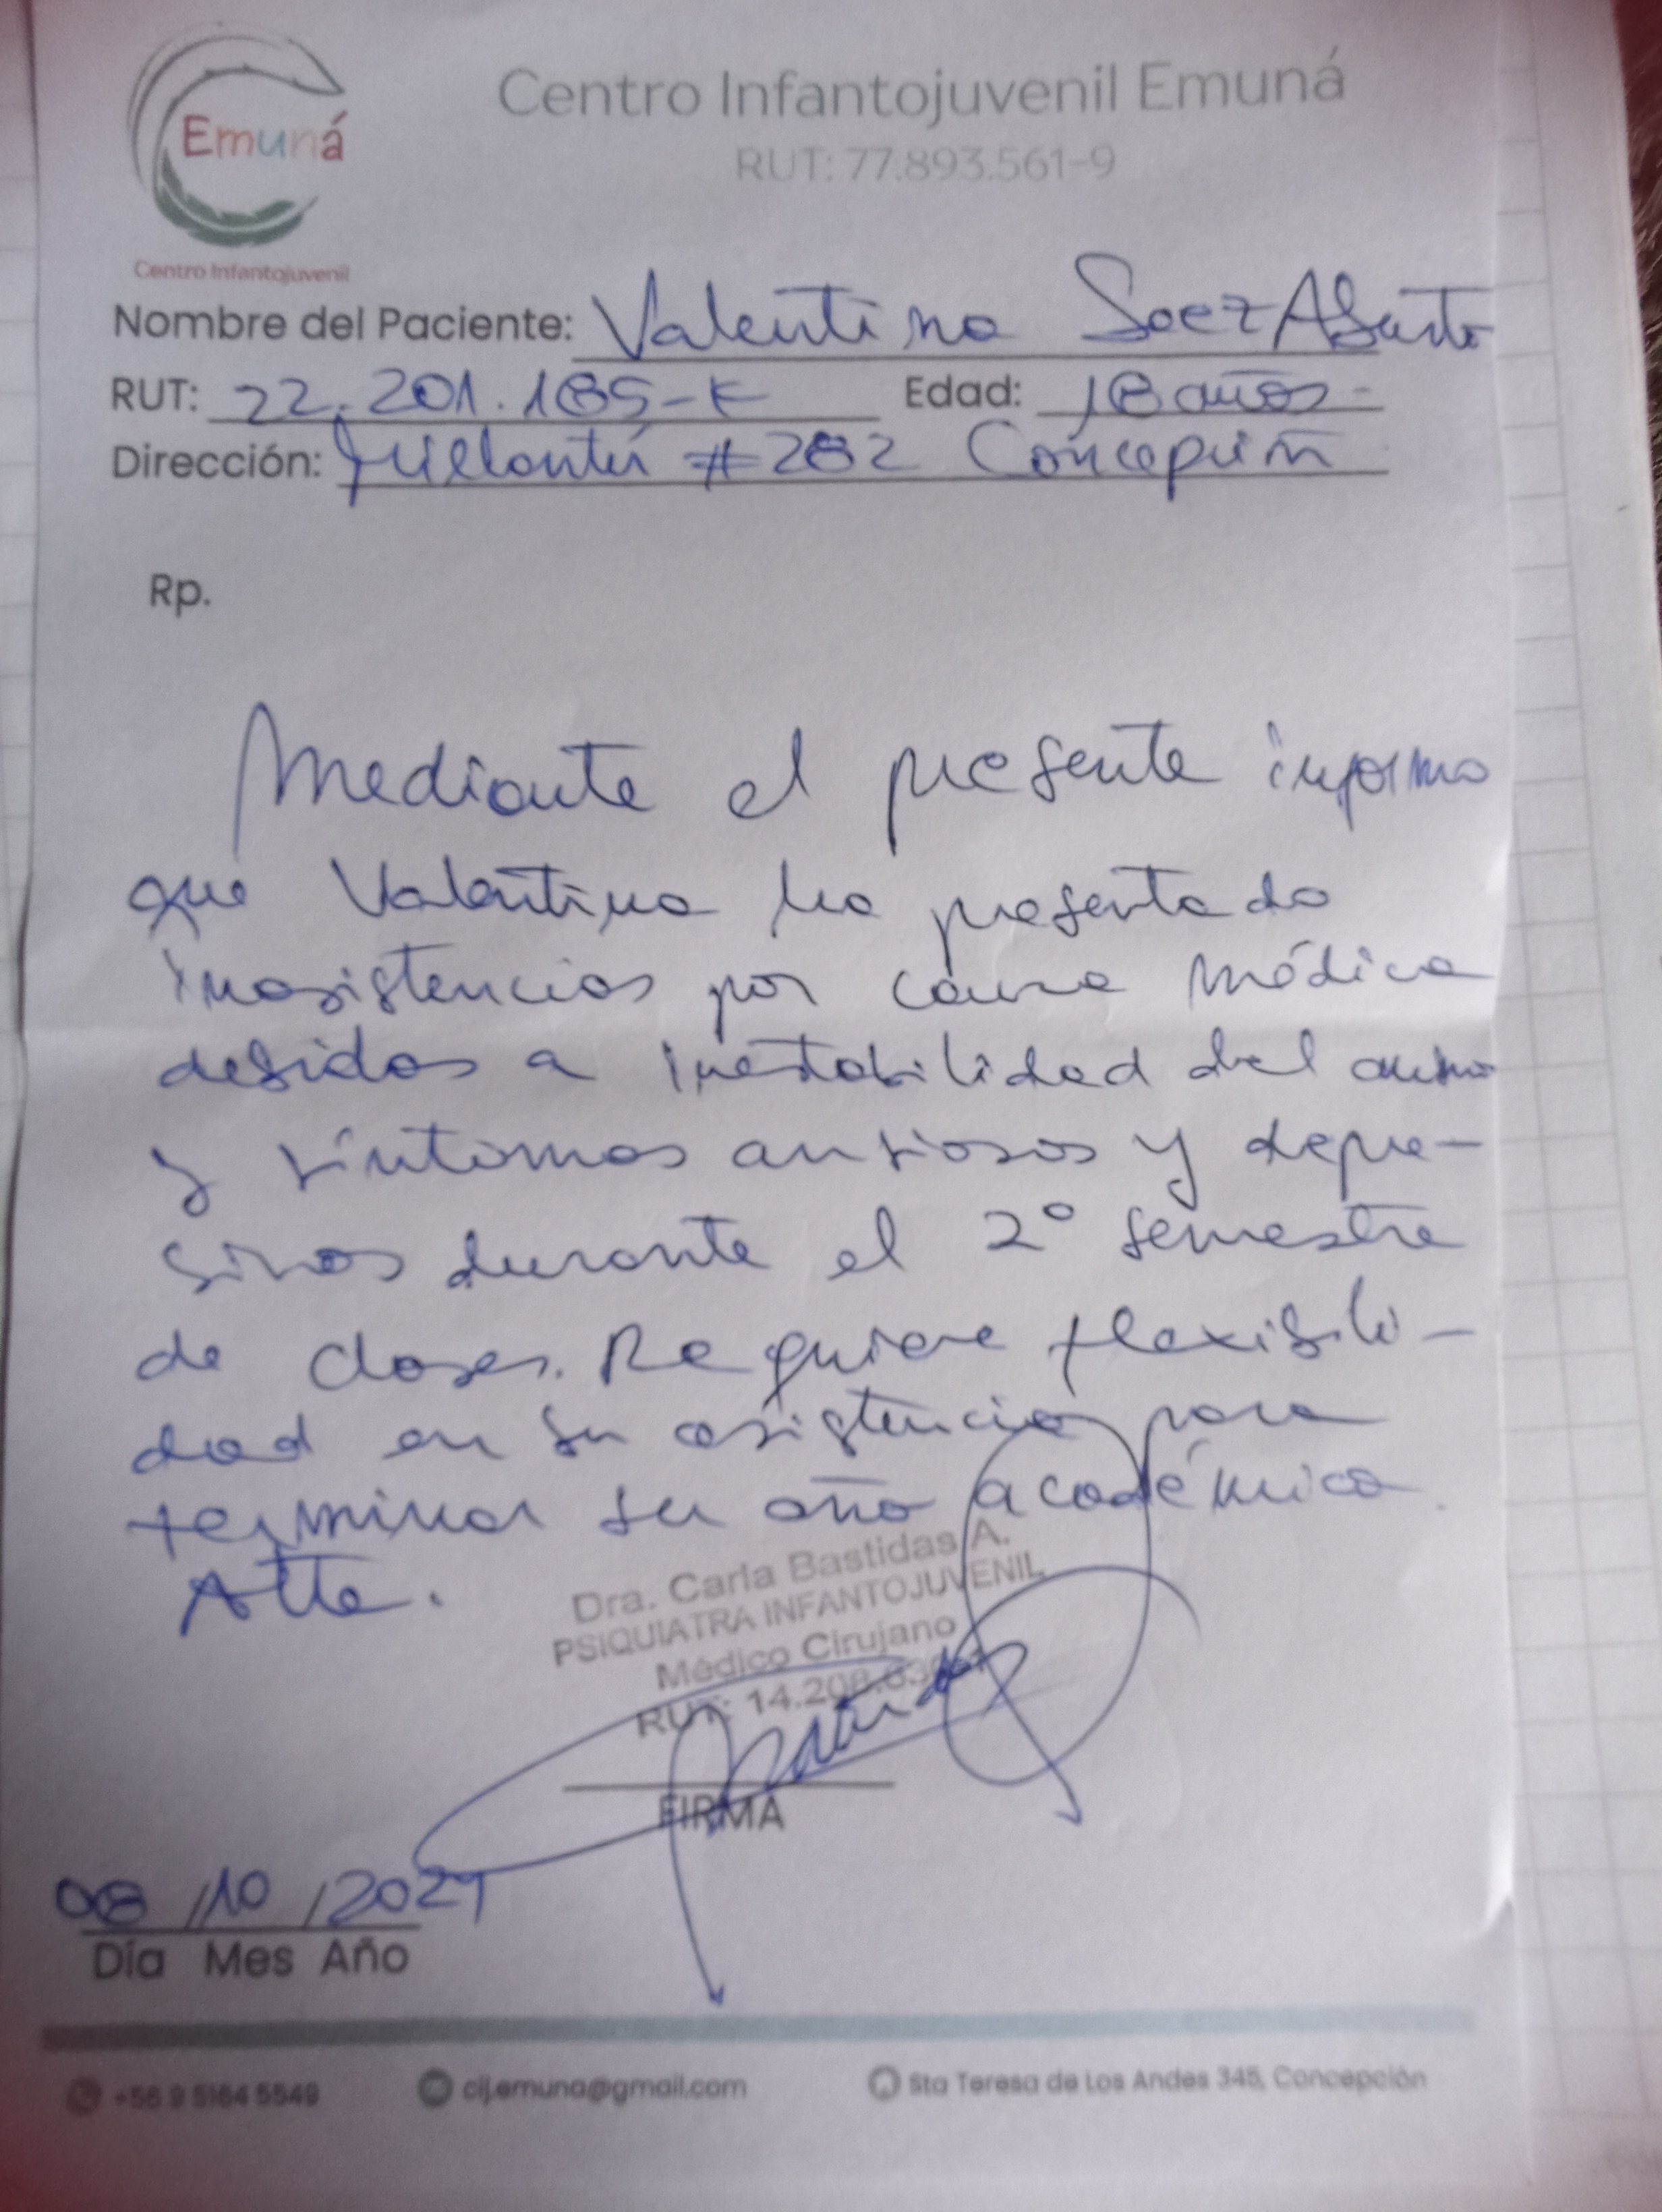 Emuná
Centro Infantojuvenil
Centro Infantojuvenil Emuná
RUT: 77.893.561-9
Nombre del Paciente: Valentina Saez Aburto
RUT: 22.201.185-K Edad: 18 años
Dirección: #282 Concepción
Rp.
Mediante el presente informo
que Valentina ha presentado
inasistencias por causa médica
debidas a inestabilidad del animo
y síntomas ansiosos y depre-
sivos durante el 2° semestre
de clases. Requiere flexibili-
dad en su asistencia para
terminar su año académico.
Atte.
Dra. Carla Bastidas A.
PSIQUIATRA INFANTOJUVENIL
Médico Cirujano
RUT: 14.208.
FIRMA
08/10/2024
Día Mes Año
+56 9 5164 5549 cij.emuna@gmail.com Sta Teresa de Los Andes 345, Concepción